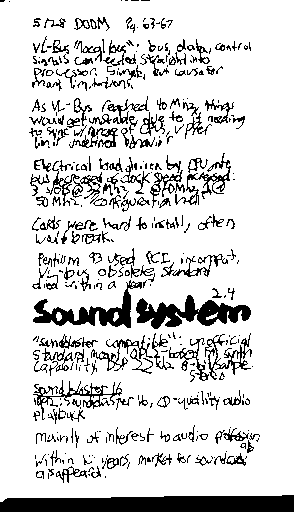 5/28 DOOM Pg. 63-67
VL-Bus "local bus": bus, data, control
signals connected straight into
processor. Simple, but causes for
many limitations.
As VL-Bus reached 40 MHz, things
would get unstable due to it needing
to sync w/ range of CPUs, upper
limit undefined behavior
Electrical load driven by CPU into
bus decreased as clock speed increased:
3 slots @ 33MHz, 2 @ 40MHz, 1 @
50 MHz. "configuration hell"
Cards were hard to install, often
would break.
Pentium '93 used PCI, incompat.
VL-bus obsolete, standard
died within a year
2.4
Sound system
"soundblaster compatible": unofficial
standard meant OPL2-based FM synth
capability, DSP 22 kHz 8-bit sample
stereo
Sound blaster 16
1992: Soundblaster 16, CD-quality audio
playback
mainly of interest to audio
Within years, market for soundcards
disappeared.